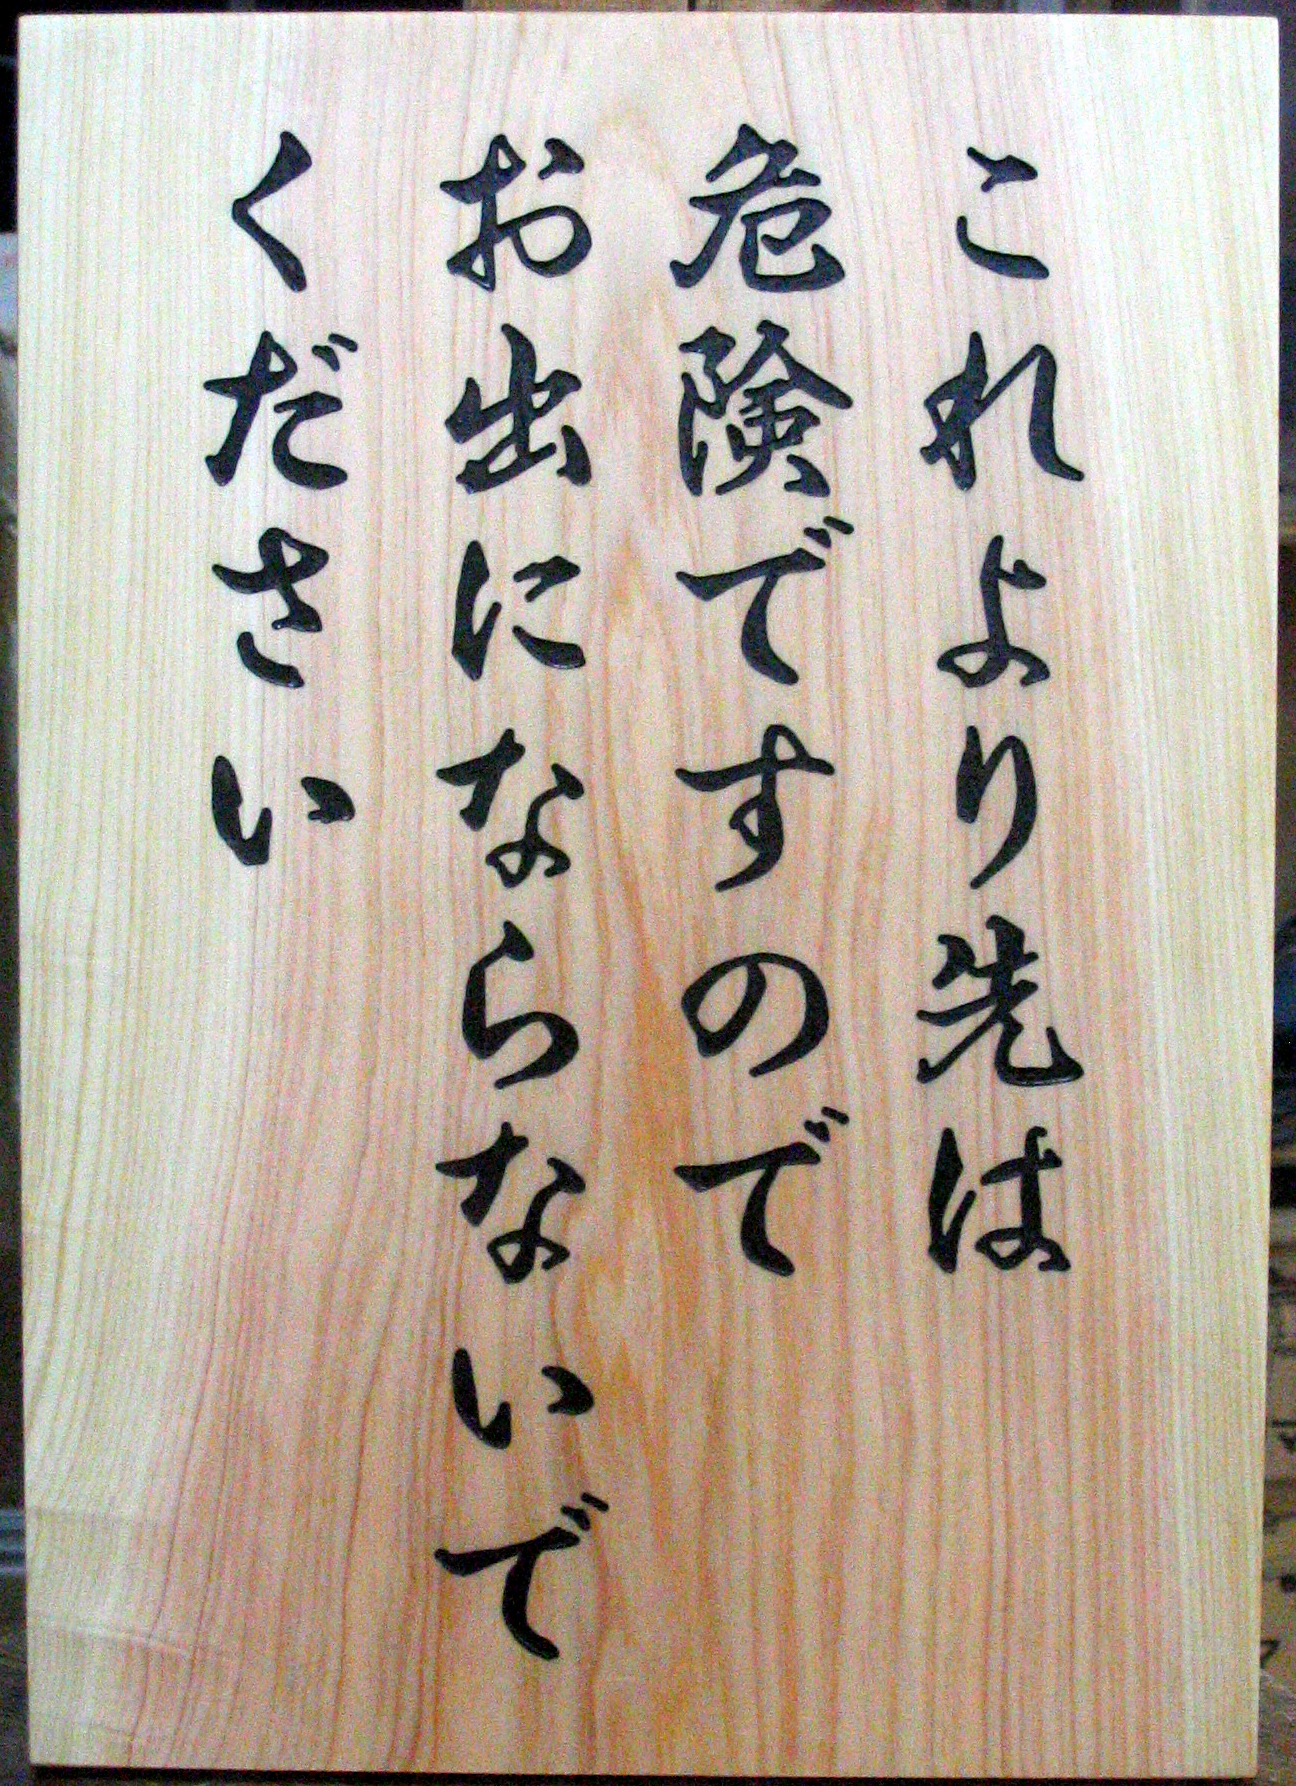 これより先は
危険ですので
お出にならないで
ください